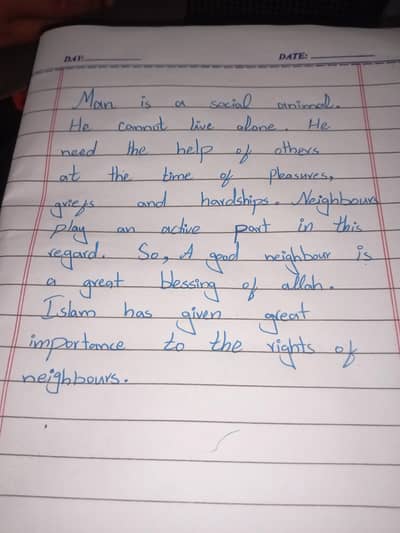 DAY:
DATE:
Man is a social animal.
He cannot live alone. He
need the help of others
at the time of Pleasures,
griefs and hardships. Neighbours
play an active part in this
regard. So, A good neighbour is
a great blessing of allah.
Islam has given great
importance to the rights of
neighbours.